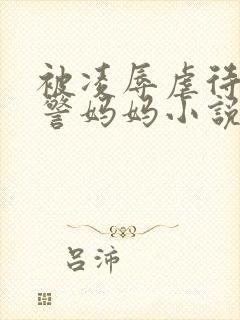 被凌辱虐待
警妈妈小说
吕沛